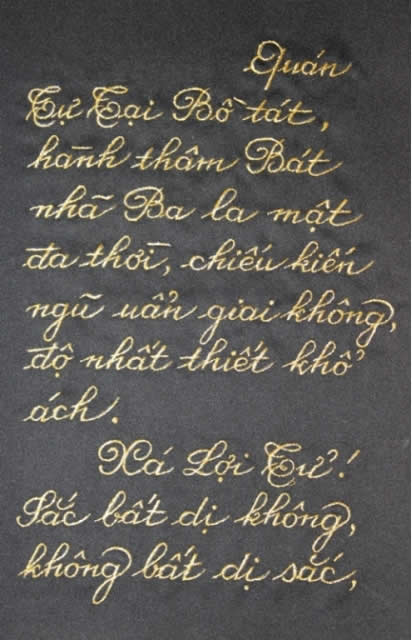 Quán
Tự Tại Bồ tát,
hành thâm Bát
nhã Ba la mật
đa thời, chiếu kiến
ngũ uẩn giai không,
độ nhất thiết khổ
ách.
Xá Lợi Tử!
Sắc bất dị không,
không bất dị sắc,